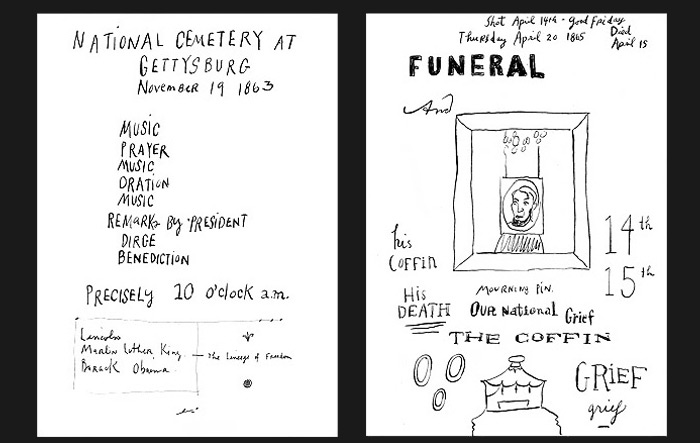 NATIONAL CEMETERY AT
GETTYSBURG
November 19 1863
MUSIC
PRAYER
MUSIC
ORATION
MUSIC
REMARKS By PRESIDENT
DIRGE
BENEDICTION
PRECISELY 10 o'clock a.m.
Lincoln
Martin Luther King
Barack Obama
The Lineage of Freedom
Shot April 14th - good Friday
Thursday April 20 1865
Died
April 15
FUNERAL
And
his
COFFIN
14th
15th
His
DEATH
MOURNING PIN.
OUR National Grief
THE COFFIN
GRIEF
grief